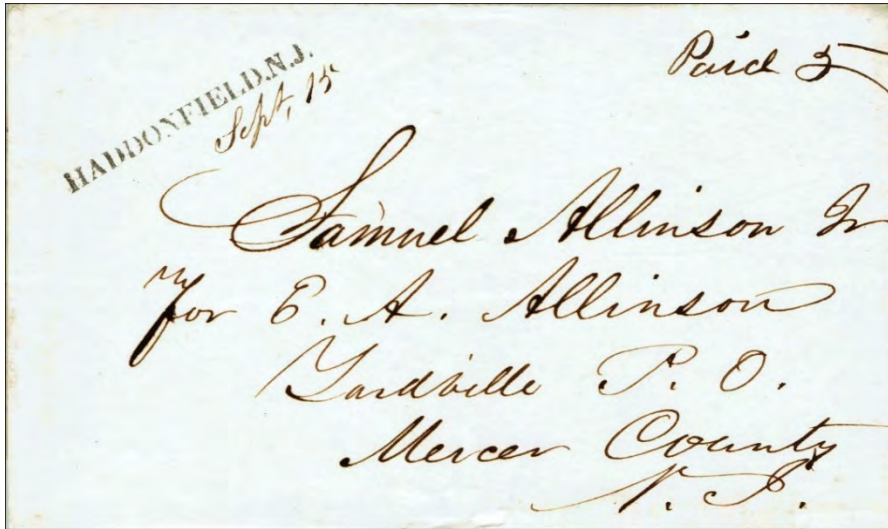 HADDONFIELD.N.J.
Sept, 15
Paid 5
Samuel Allinson Jr
for E. A. Allinson
Yardville P. O.
Mercer County
N. J.